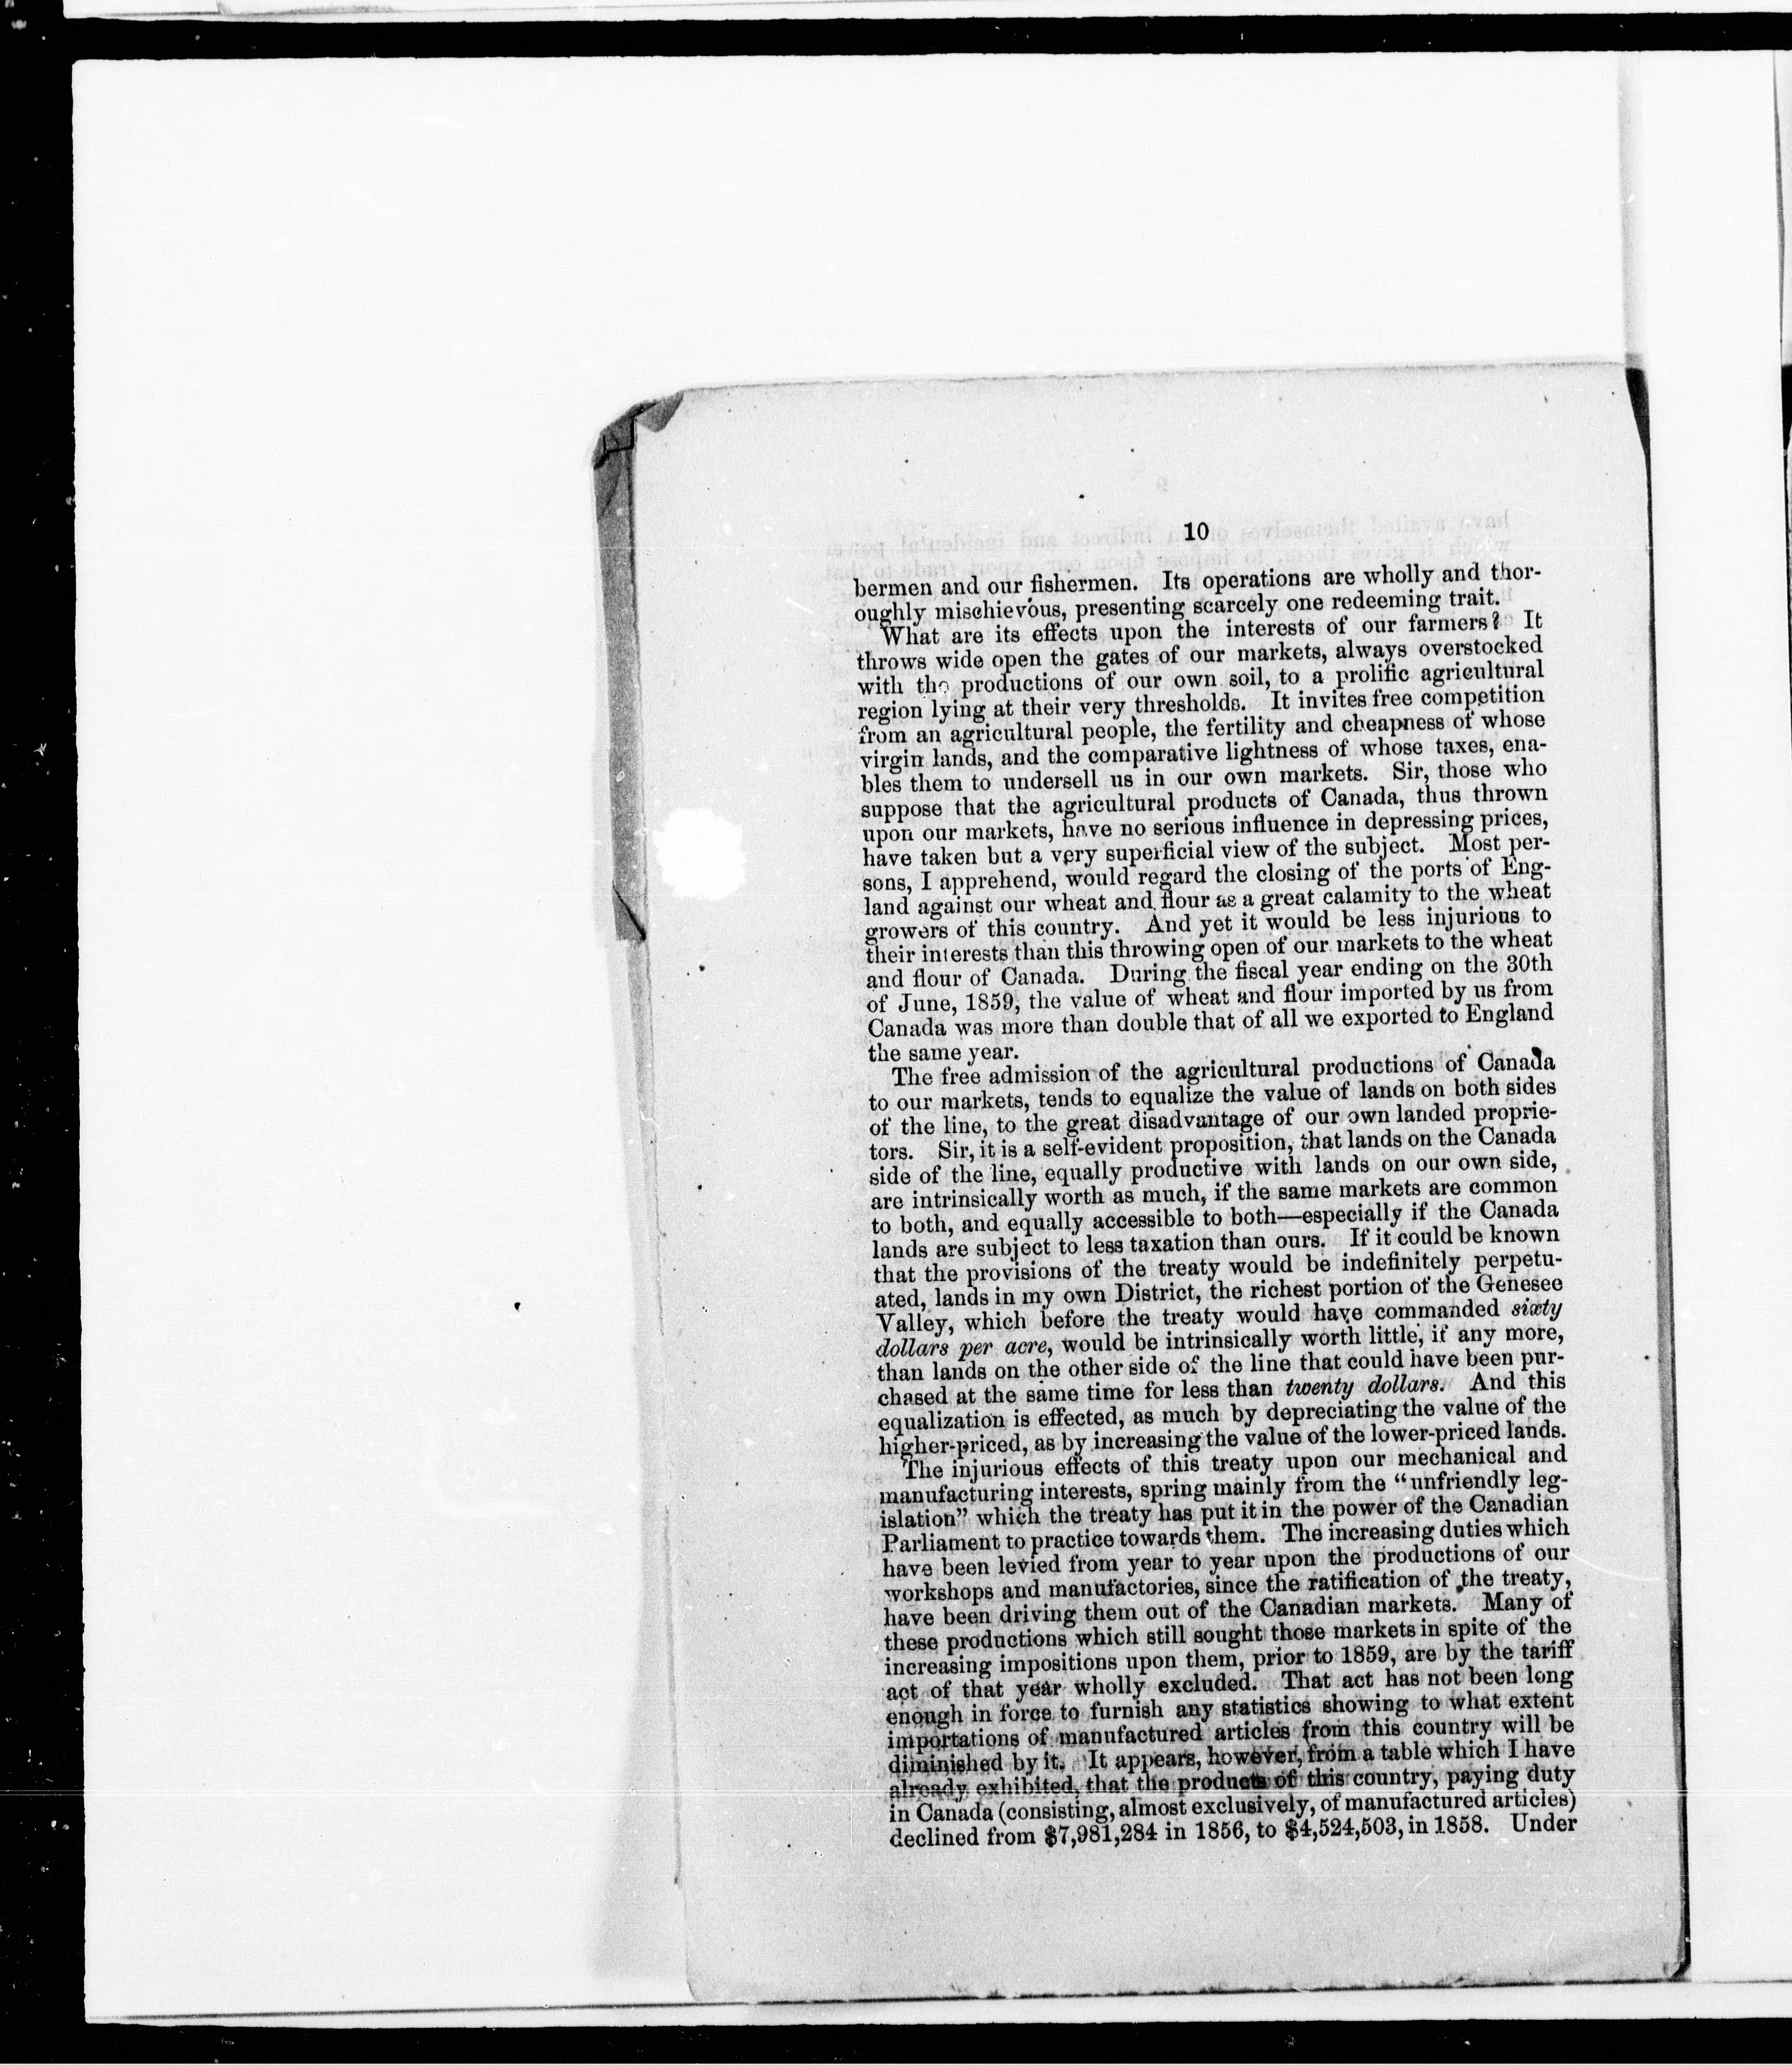 10
bermen and our fishermen. Its operations are wholly and thor-
oughly mischievous, presenting scarcely one redeeming trait.
What are its effects upon the interests of our farmers? It
throws wide open the gates of our markets, always overstocked
with the productions of our own soil, to a prolific agricultural
region lying at their very thresholds. It invites free competition
from an agricultural people, the fertility and cheapness of whose
virgin lands, and the comparative lightness of whose taxes, ena-
bles them to undersell us in our own markets. Sir, those who
suppose that the agricultural products of Canada, thus thrown
upon our markets, have no serious influence in depressing prices,
have taken but a very superficial view of the subject. Most per-
sons, I apprehend, would regard the closing of the ports of Eng-
land against our wheat and flour as a great calamity to the wheat
growers of this country. And yet it would be less injurious to
their interests than this throwing open of our markets to the wheat
and flour of Canada. During the fiscal year ending on the 30th
of June, 1859, the value of wheat and flour imported by us from
Canada was more than double that of all we exported to England
the same year.
The free admission of the agricultural productions of Canada
to our markets, tends to equalize the value of lands on both sides
of the line, to the great disadvantage of our own landed proprie-
tors. Sir, it is a self-evident proposition, that lands on the Canada
side of the line, equally productive with lands on our own side,
are intrinsically worth as much, if the same markets are common
to both, and equally accessible to both—especially if the Canada
lands are subject to less taxation than ours. If it could be known
that the provisions of the treaty would be indefinitely perpetu-
ated, lands in my own District, the richest portion of the Genesee
Valley, which before the treaty would have commanded sixty
dollars per acre, would be intrinsically worth little, if any more,
than lands on the other side of the line that could have been pur-
chased at the same time for less than twenty dollars. And this
equalization is effected, as much by depreciating the value of the
higher-priced, as by increasing the value of the lower-priced lands.
The injurious effects of this treaty upon our mechanical and
manufacturing interests, spring mainly from the “unfriendly leg-
islation” which the treaty has put it in the power of the Canadian
Parliament to practice towards them. The increasing duties which
have been levied from year to year upon the productions of our
workshops and manufactories, since the ratification of the treaty,
have been driving them out of the Canadian markets. Many of
these productions which still sought those markets in spite of the
increasing impositions upon them, prior to 1859, are by the tariff
act of that year wholly excluded. That act has not been long
enough in force to furnish any statistics showing to what extent
importations of manufactured articles from this country will be
diminished by it. It appears, however, from a table which I have
already exhibited, that the products of this country, paying duty
in Canada (consisting, almost exclusively, of manufactured articles)
declined from $7,981,284 in 1856, to $4,524,503, in 1858. Under